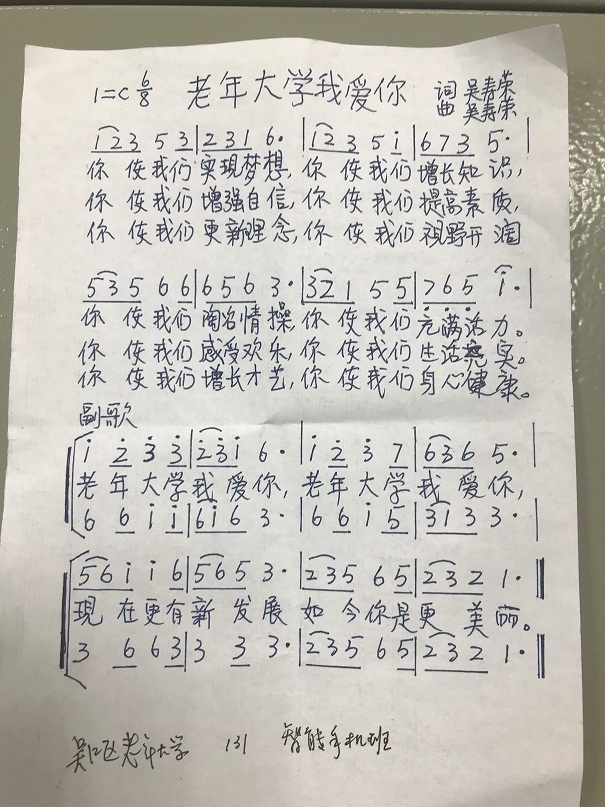 1=C 6/8 老年大学我爱你 词 吴寿荣
曲 吴寿荣
1 2 3 5 3 | 2 3 1 6· | 1 2 3 5 i | 6 7 3 5· |
你 使我们 实现梦想, 你 使我们 增长知识,
你 使我们 增强自信, 你 使我们 提高素质,
你 使我们 更新理念, 你 使我们 视野开阔
5 3 5 6 6 | 6 5 6 3· | 3 2 1 5 5 | 7 6 5 1· |
你 使我们 陶冶情操, 你 使我们 充满活力。
你 使我们 感受欢乐, 你 使我们 生活充实。
你 使我们 增长才艺, 你 使我们 身心健康。
副歌
i 2 3 3 | 2 3 i 6· | i 2 3 7 | 6 3 6 5· |
老年大学我爱你, 老年大学我爱你,
6 6 i i | 6 i 6 3· | 6 6 i 5 | 3 1 3 3· |
5 6 i i 6 | 5 6 5 3· | 2 3 5 6 5 | 2 3 2 1· ‖
现在更有新发展 如今你是更美丽。
3 6 6 3 | 3 3 3· | 2 3 5 6 5 | 2 3 2 1· ‖
吴江区老年大学 131 智能手机班